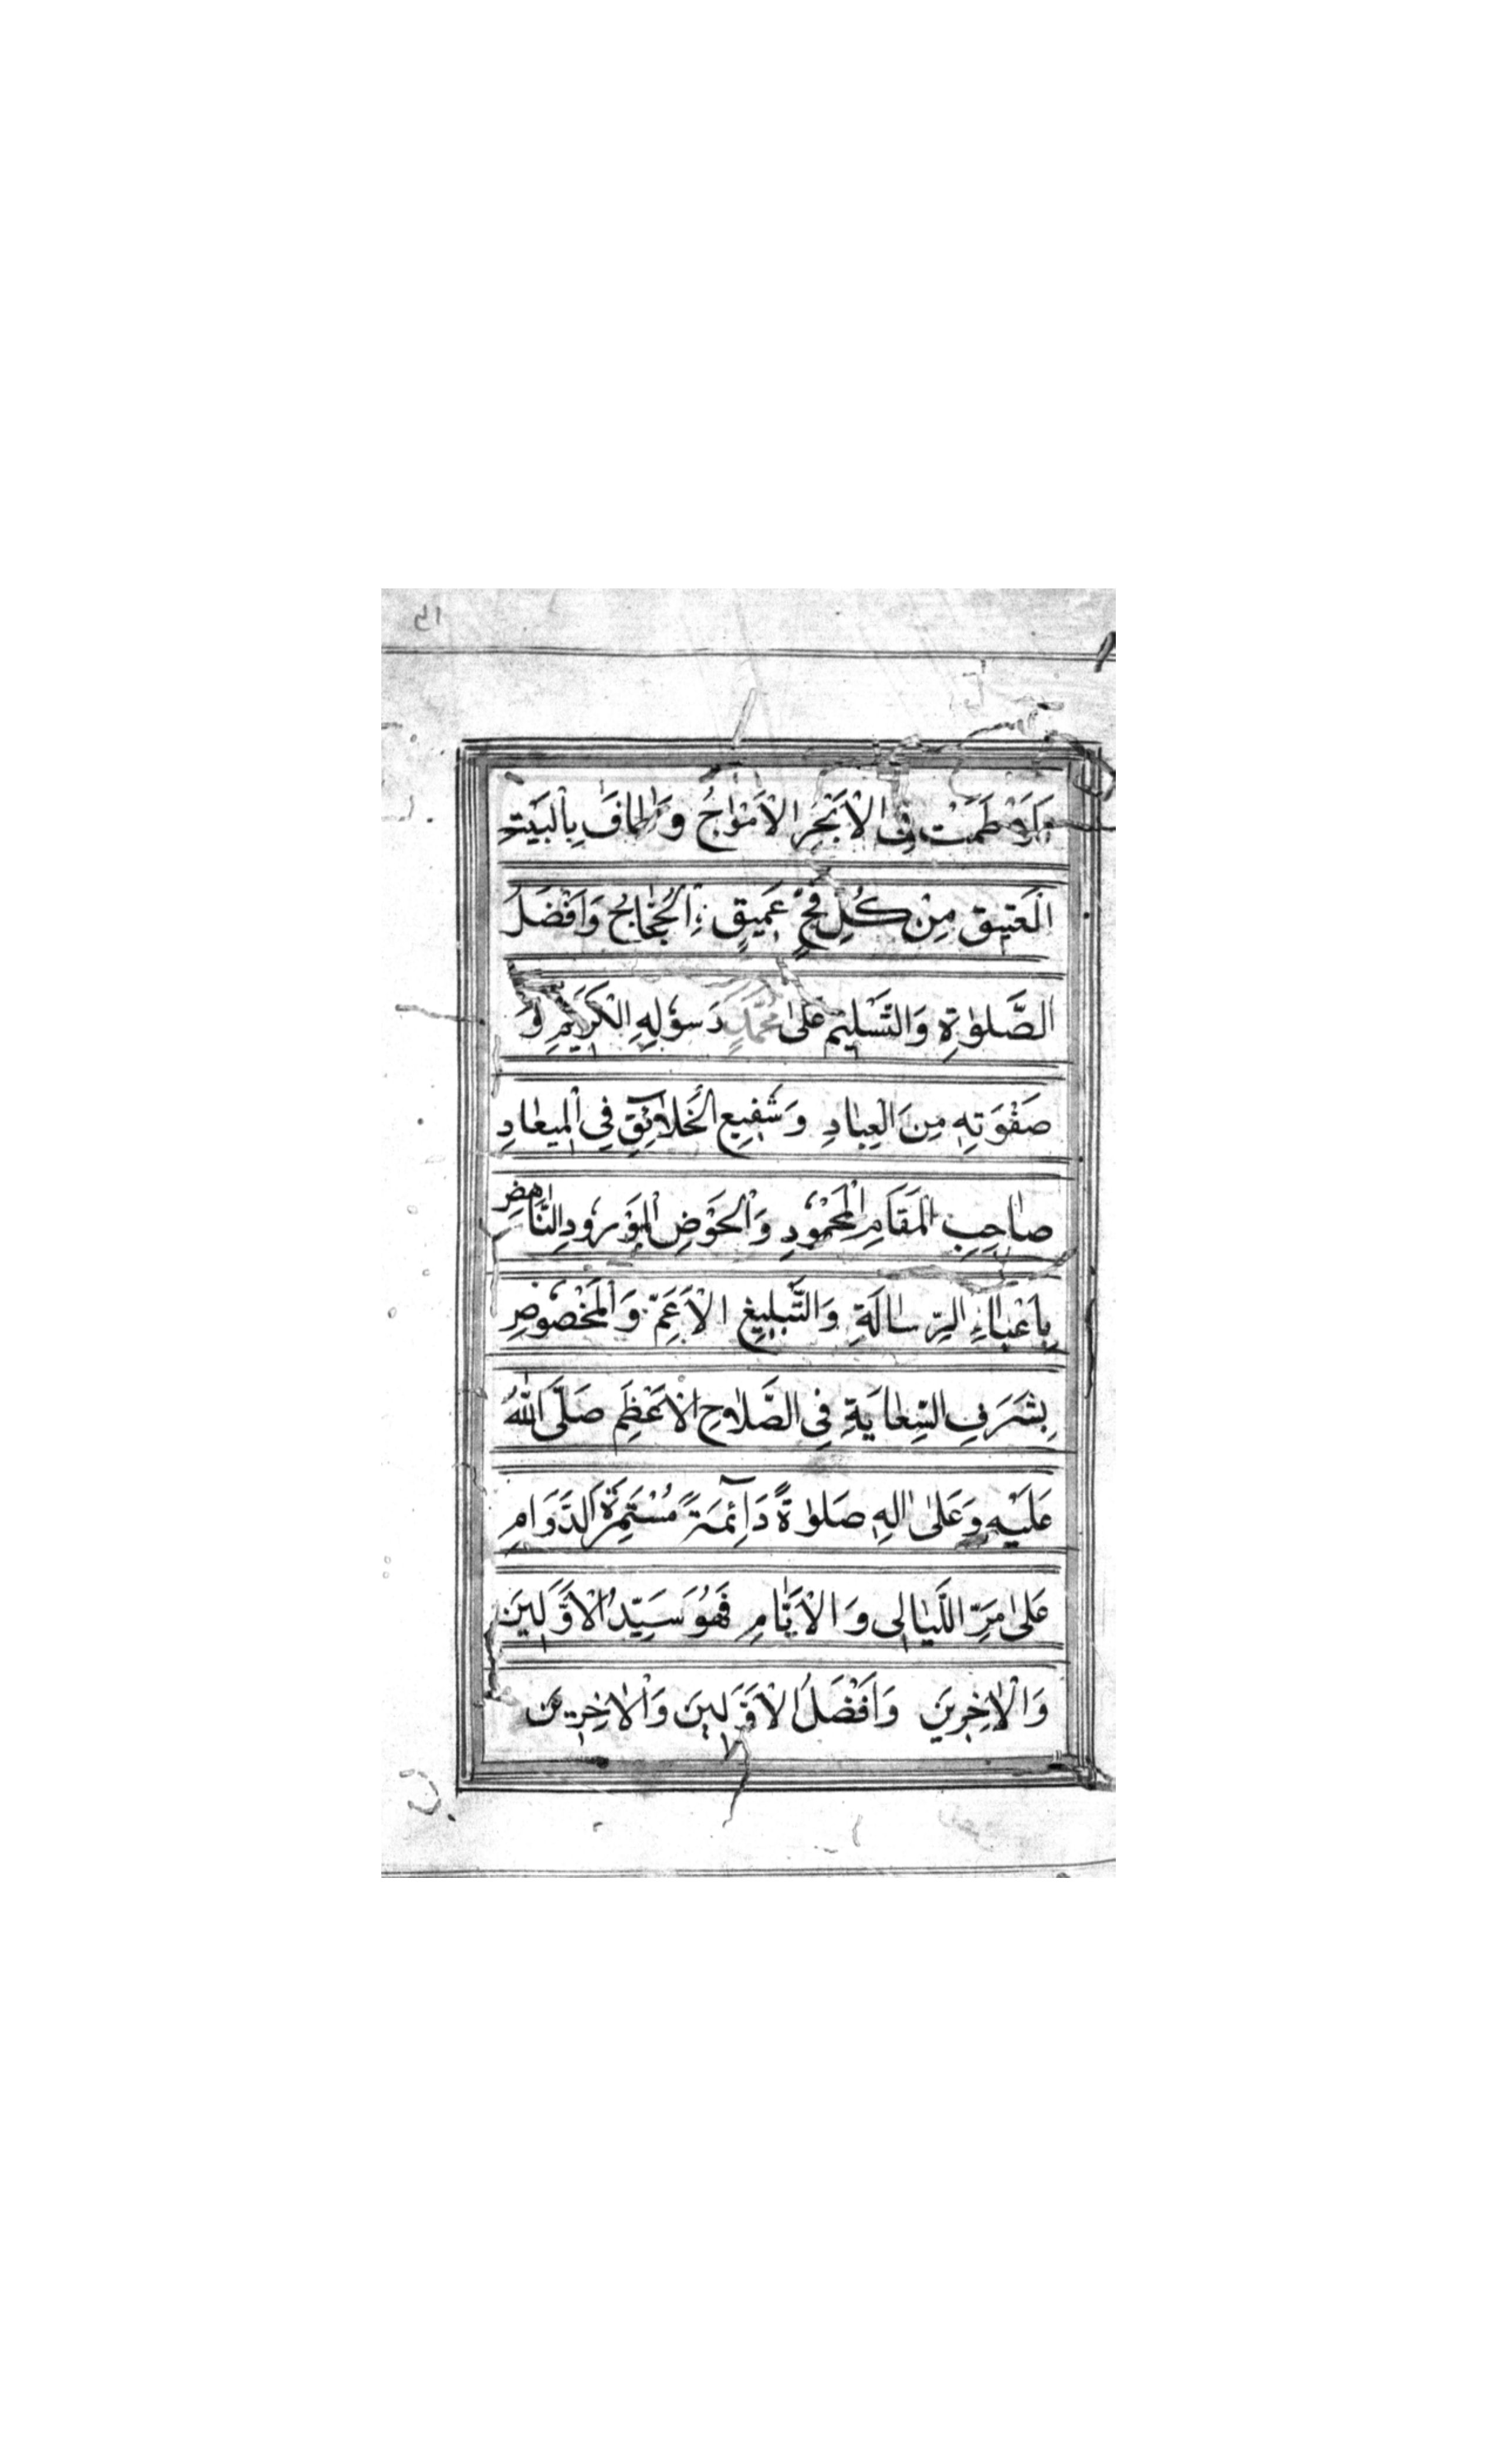 وَتَلَاطَمَتْ فِي الْاَبْحُرِ الْاَمْوٰاجُ وَطٰافَ بِالْبَيْتِ
الْعَتِيقِ مِنْ كُلِّ فَجٍّ عَمِيقٍ الْحُجّٰاجُ وَاَفْضَلُ
الصَّلوٰةِ وَالتَّسْلِيمِ عَلىٰ مُحَمَّدٍ رَسُولِهِ الْكَرِيمِ وَ
صَفْوَتِهِ مِنَ الْعِبٰادِ وَشَفِيعِ الْخَلٰائِقِ فِي الْمِيعٰادِ
صٰاحِبِ الْمَقَامِ الْمَحْمُودِ وَالْحَوْضِ الْمَوْرُودِ النَّاهِضِ
بِاَعْبٰاءِ الرِّسٰالَةِ وَالتَّبْلِيغِ الْاَعَمِّ وَالْمَخْصُوصِ
بِشَرَفِ السِّعٰايَةِ فِي الصَّلٰاحِ الْاَعْظَمِ صَلَّى اللّٰهُ
عَلَيْهِ وَعَلىٰ اٰلِهِ صَلوٰةً دَآئِمَةً مُسْتَمِرَّةَ الدَّوَامِ
عَلىٰ مَرِّ اللَّيٰالِي وَالْاَيّٰامِ فَهُوَ سَيِّدُ الْاَوَّلِينَ
وَالْاٰخِرِينَ وَاَفْضَلُ الْاَوَّلِينَ وَالْاٰخِرِينَ